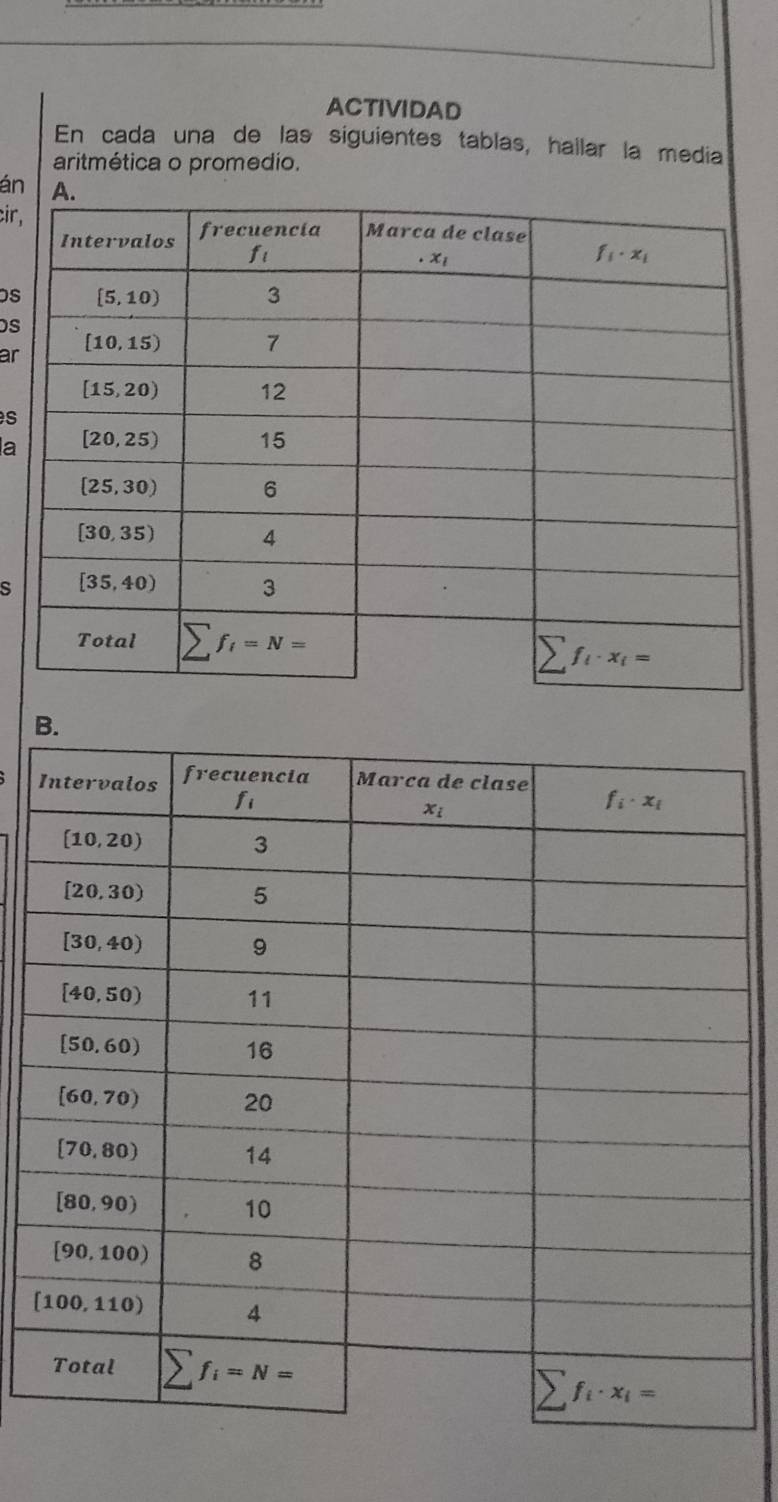 ACTIVIDAD
En cada una de las siguientes tablas, hallar la media
aritmética o promedio.
án
cir,
os
os
ar
es
la
s
A.
Intervalos frecuencia fi Marca de clase . xi fi · xi
[5, 10) 3
[10, 15) 7
[15, 20) 12
[20, 25) 15
[25, 30) 6
[30, 35) 4
[35, 40) 3
Total ∑ fi = N = ∑ fi · xi =
B.
Intervalos frecuencia fi Marca de clase xi fi · xi
[10, 20) 3
[20, 30) 5
[30, 40) 9
[40, 50) 11
[50, 60) 16
[60, 70) 20
[70, 80) 14
[80, 90) 10
[90, 100) 8
[100, 110) 4
Total ∑ fi = N = ∑ fi · xi =